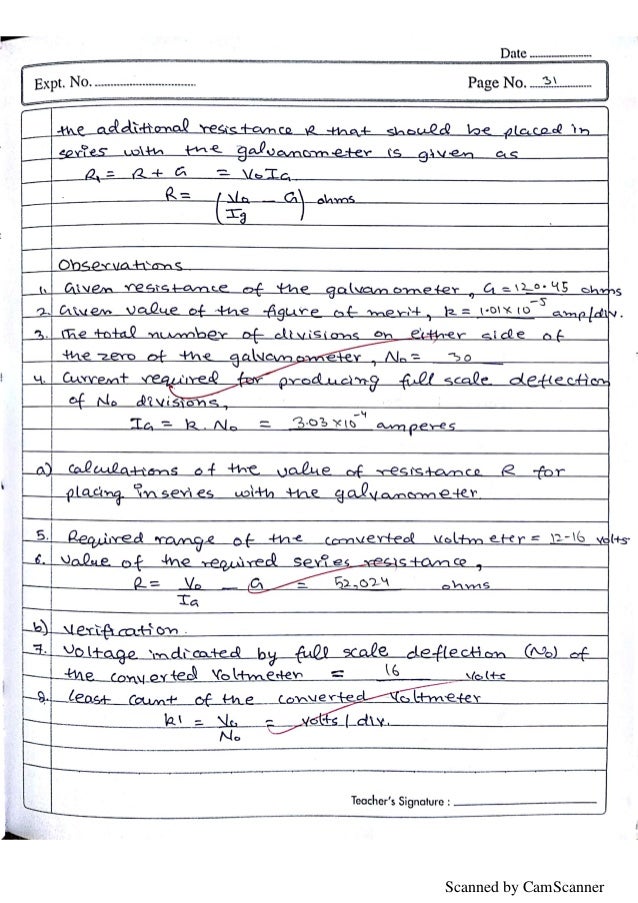 Date ........................
Expt. No. .................................. Page No. ...31...............
the additional resistance R that should be placed in
series with the galvanometer is given as
R1 = R + G = V0 IG
R = (V0/Ig - G) ohms
Observations
1. Given resistance of the galvanometer, G = 120.45 ohms
2. Given value of the figure of merit, k = 1.01 x 10^-5 amp/div.
3. The total number of divisions on either side of
the zero of the galvanometer, No = 30
4. Current required for producing full scale deflection
of No divisions,
IG = k. No = 3.03 x 10^-4 amperes
a) calculations of the value of resistance R for
placing in series with the galvanometer
5. Required range of the converted voltmeter = 12-16 volts
6. value of the required series resistance,
R = Vo/IG - G = 52,024 ohms
b) verification.
7. Voltage indicated by full scale deflection (No) of
the converted voltmeter = 16 volts
8. least count of the converted voltmeter
k1 = V0/No = volts / div.
Teacher's Signature : ______________
Scanned by CamScanner